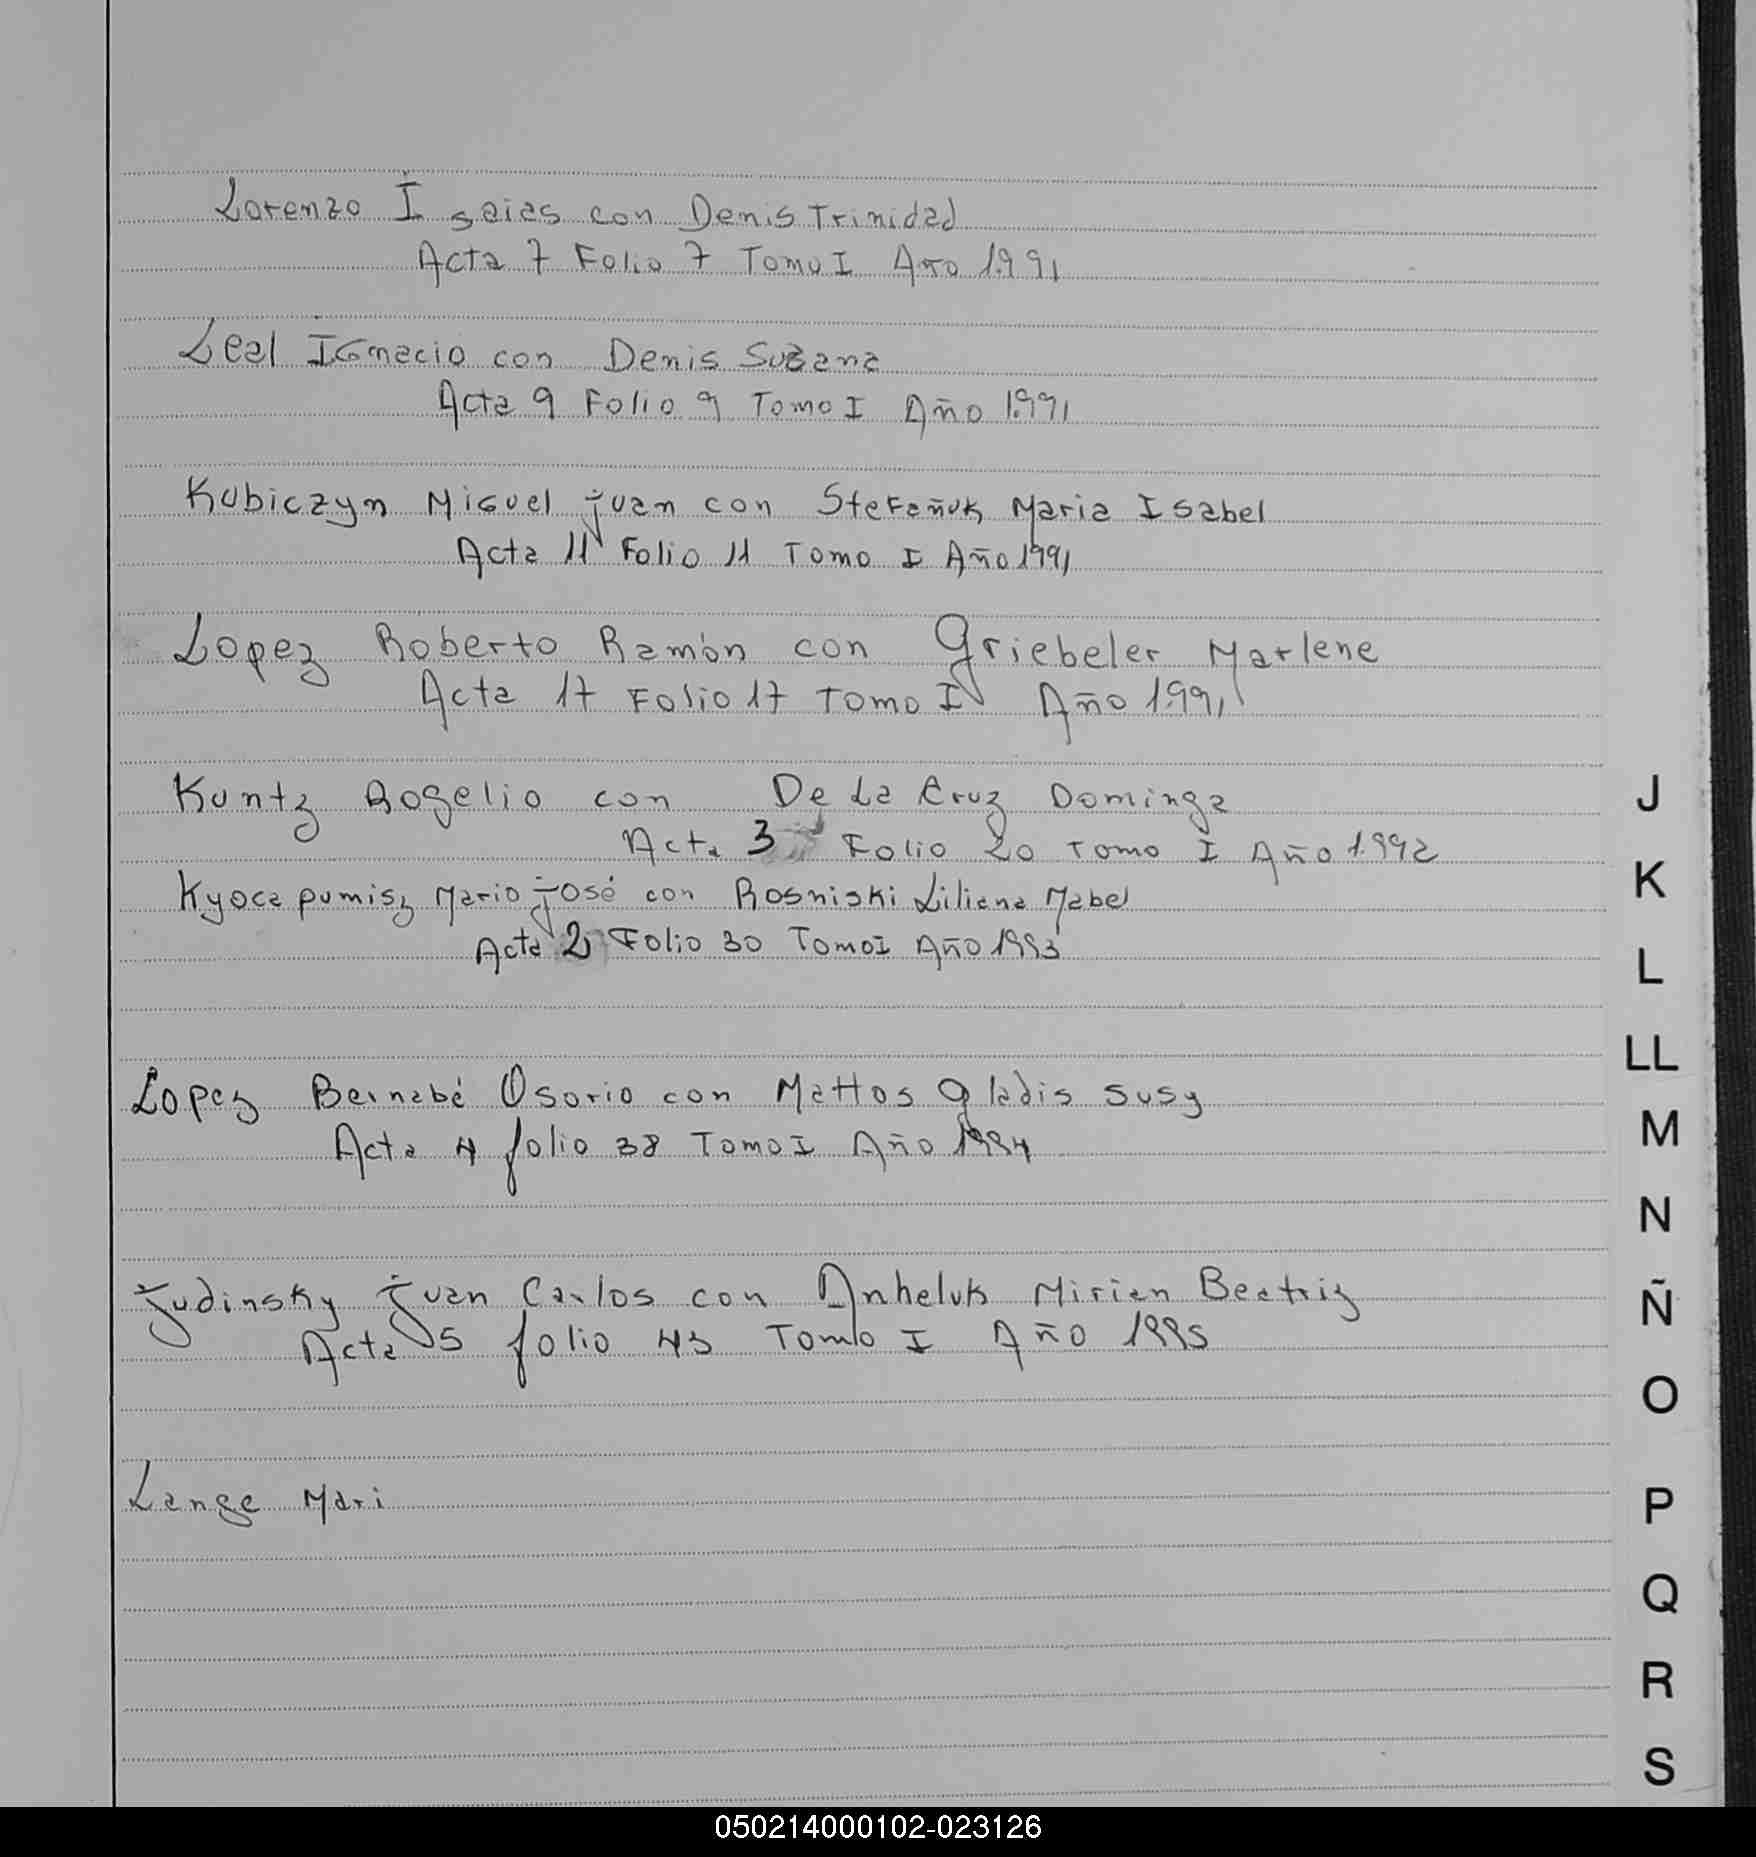 Lorenzo Isaias con Denis Trinidad
Acta 7 Folio 7 Tomo I Año 1991
Leal IGnacio con Denis Suzana
Acta 9 Folio 9 Tomo I Año 1991
Kubiczyn Miguel Juan con Stefañuk Maria Isabel
Acta 11 Folio 11 Tomo I Año 1991
Lopez Roberto Ramón con Griebeler Marlene
Acta 17 Folio 17 Tomo I Año 1.991
Kuntz Rogelio con De La Cruz Dominga
Acta 3 Folio 20 Tomo I Año 1.992
Kyocapumisz Mario José con Rosniski Liliana Mabel
Acta 2 Folio 30 Tomo I Año 1993
Lopez Bernabé Osorio con Mattos Gladis Susy
Acta 4 folio 38 Tomo I Año 1994
Judinsky Juan Carlos con Anheluk Mirian Beatriz
Acta 5 folio 43 Tomo I Año 1995
Lange Mari
J
K
L
LL
M
N
Ñ
O
P
Q
R
S
050214000102-023126